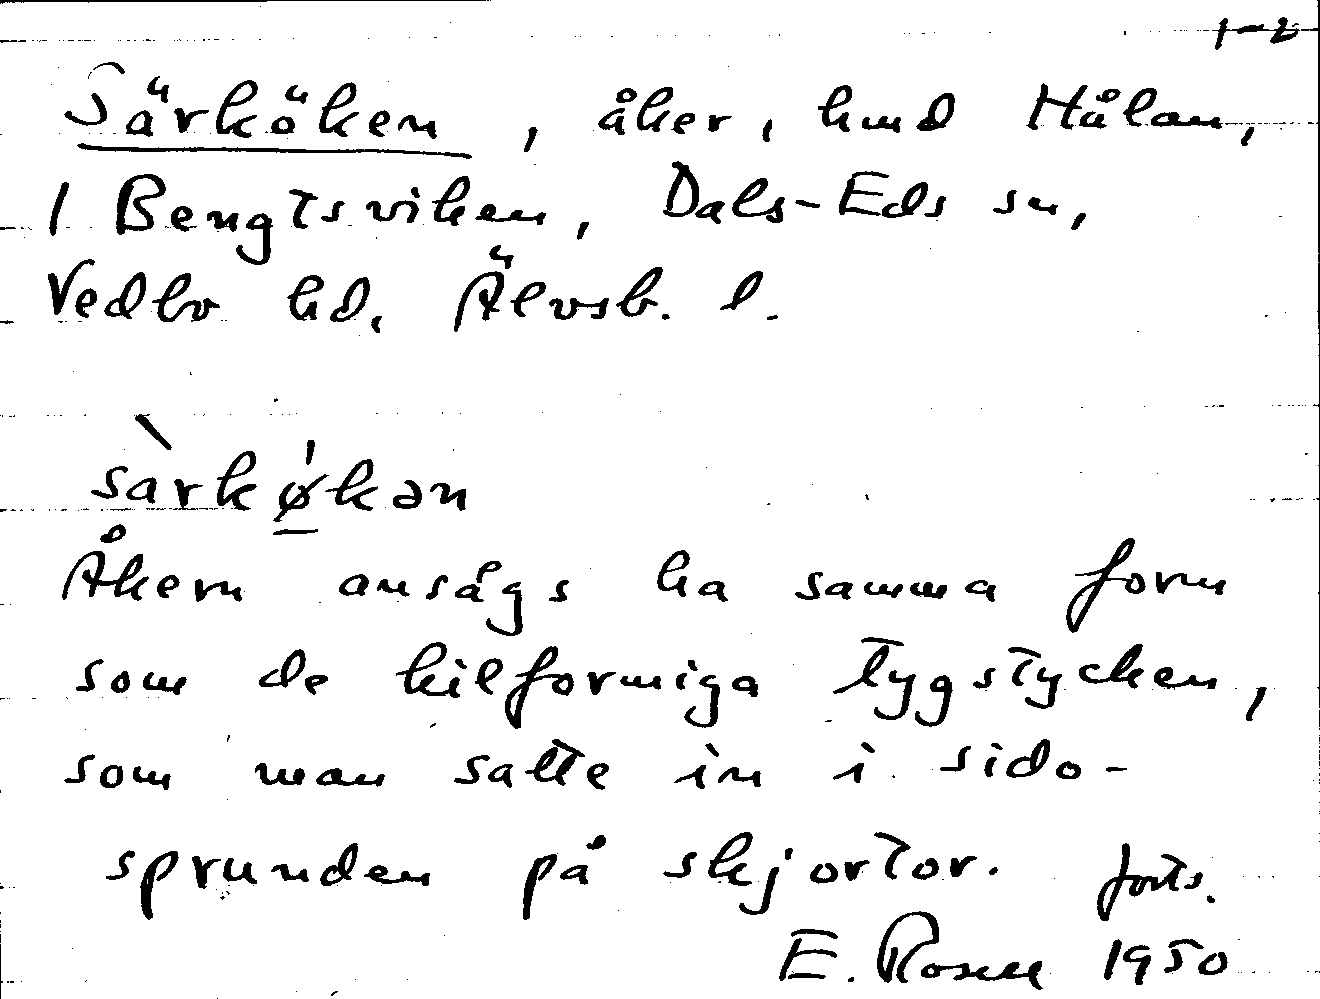 1-2
Särköken, åker, hmd Hålan,
1 Bengtsviken, Dals-Eds sn,
Vedbo hd, Älvsb. l.
sàrkǿ̱kən
Åkern ansågs ha samma form
som de kilformiga tygstycken,
som man satte in i sido-
sprunden på skjortor. forts.
E. Rosell 1950